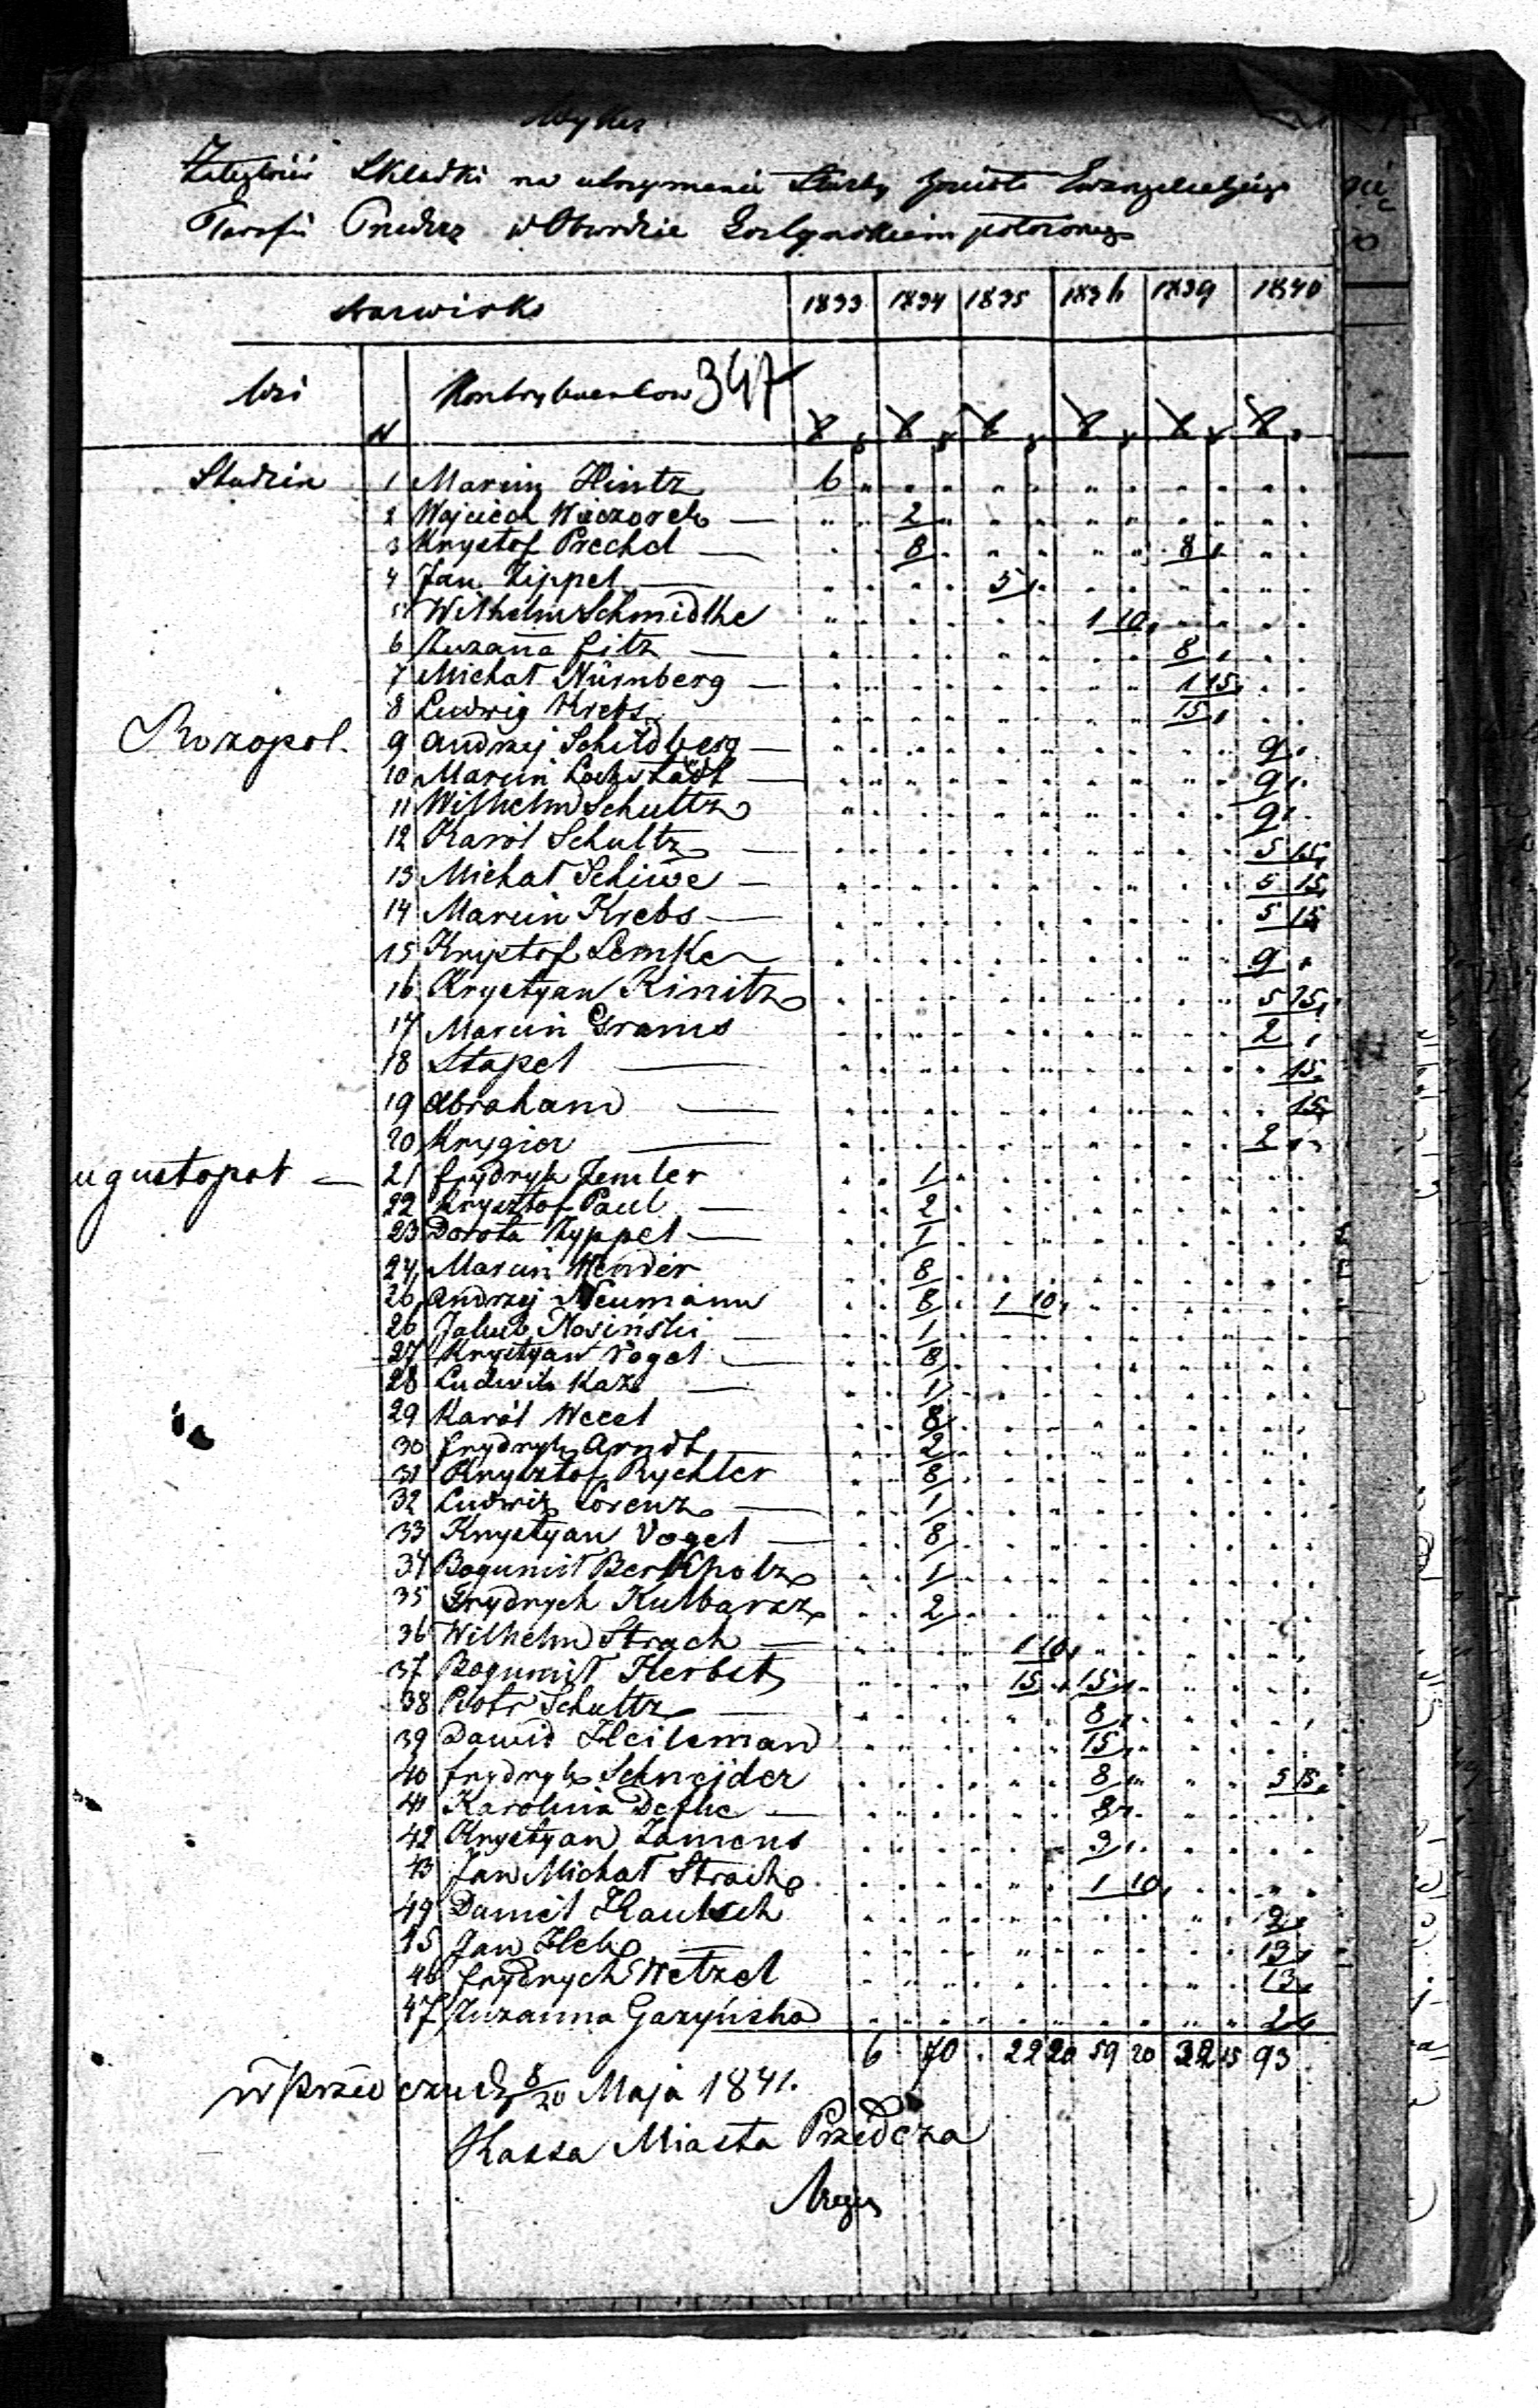 Wykaz
Składki na utrzymanie
Parafii w Obwodzie Gostyńskiem położonego
Nazwisko 1833 1834 1835 1836 1839 1840
Wsi N Kontrybuentow 347
Studzin 1 Marcin Hintz 6
2 Wojciech Wieczorek — 2
3 Krysztof Prechel — 8 8
4 Jan Zippel — 5
5 Wilhelm Schmidtke 1 10
6 Zuzanna Fitz — 8
7 Michał Nürnberg — 1 15
8 Ludwig Krebs 15
Rozopol. 9 Andrzej Schildberg — 9
10 Marcin — 9
11 Wilhelm Schultz 9
12 Karól Schultz — 5 15
13 Michał Schiwe — 5 15
14 Marcin Krebs — 5 15
15 Krysztof Lemke 9
16 Krystyan Kinitz 5 15
17 Marcin Grams 2
18 Stapel — 15
19 Abraham — 15
20 Krygier — 2
ugustopol — 21 Frydryk Zemler 1
22 Krysztof Paul — 2
23 Dorota Zyppel — 1
24 Marcin Wender 8
25 Andrzej Neumann 8 1 10
26 Jakub Nosiński — 1
27 Krystyan Vogel — 8
28 Ludwik Kaz — 1
29 Karól Wecel 8
30 Frydryk Arndt — 2
31 Krysztof Rychter 8
32 Ludwig Lorenz — 1
33 Krystyan Vogel — 8
34 Bogumił Berkholz 1
35 Frydrych Kulbarsz 2
36 Wilhelm Strach — 1 10
37 Bogumił Herbst 15 15
38 Piotr Schultz — 8
39 Dawid Heileman 15
40 Frydryk Schnejder 8 5 15
41 Karolina — 8
42 Krystyan Zamens 3
43 Jan Michał Strach 1 10
44 Daniel Hautsch 2
45 Jan — 13
46 Frydrych Wetzel 13
47 Zuzanna Gazyńska 2
6 70 22 20 59 20 32 15 93
8/20 Maja 1841.
Kassa Miasta Przedcza